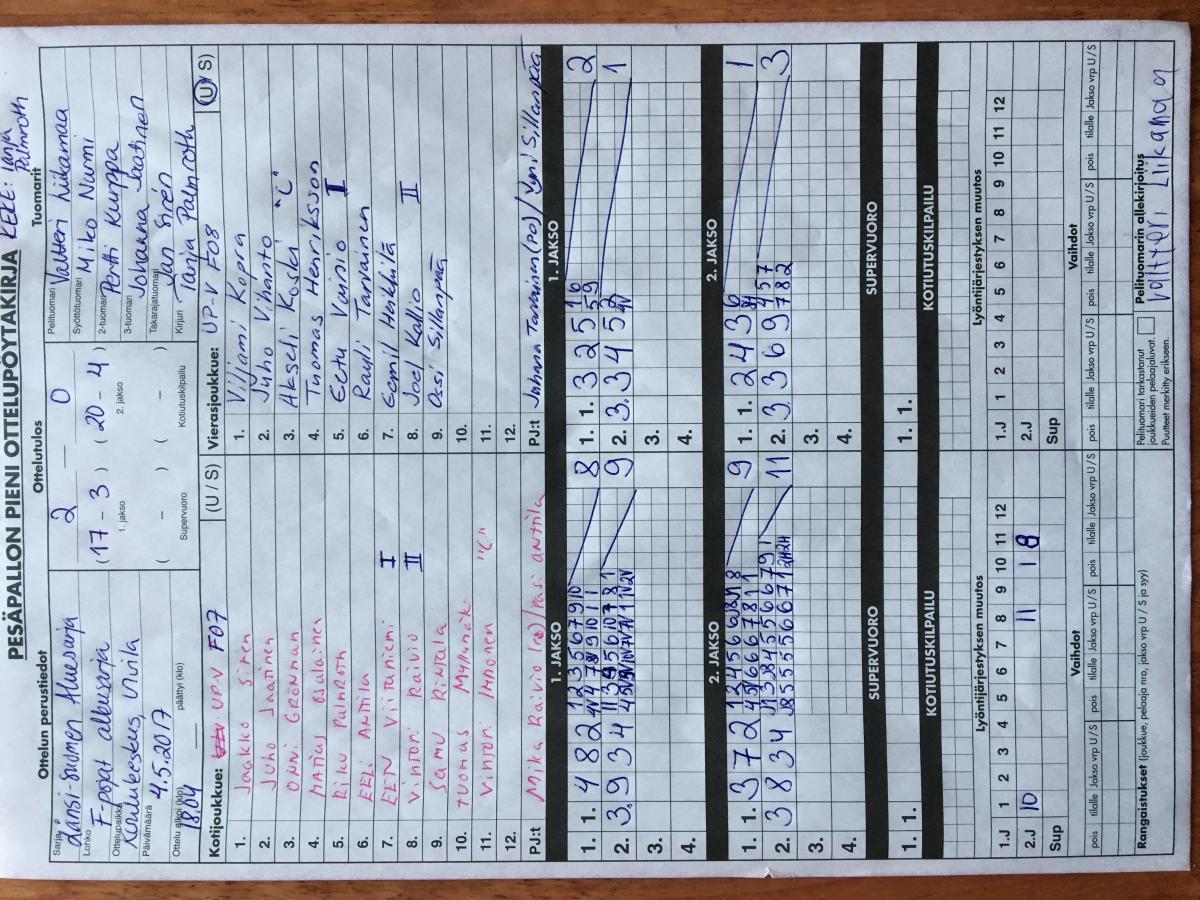 PESÄPALLON PIENI OTTELUPÖYTÄKIRJA
KELE: Tanja Palmroth
Ottelun perustiedot
Sarja Länsi-Suomen Aluesarja
Lohko F-pojat alkusarja
Ottelupaikka Koulukeskus, Nuvila
Päivämäärä 4.5.2017
Ottelu alkoi (klo) 18.04 päättyi (klo)
Ottelutulos
2 — 0
(17 – 3) (20 – 4)
1. jakso 2. jakso
( – ) ( – )
Supervuoro Kotiutuskilpailu
Tuomarit
Pelituomari Valtteri Liikamaa
Syöttötuomari Miko Nurmi
2-tuomari Pertti Kurppa
3-tuomari Johanna Jaatinen
Takarajatuomari Jan Sirén
Kirjuri Tanja Palmroth
Kotijoukkue: UP-V F07 (U / S)
1. Jaakko Siren
2. Juho Jaatinen
3. Onni Grönman
4. Matias Asalainen
5. Riku Palmroth
6. Eeli Anttila
7. Een Viitaniemi I
8. Vintori Raivio II
9. Samu Rintala
10. Tuomas Myllymäki
11. Vintori Imponen "C"
12.
PJ:t Mika Raivio (PO) / Pasi Anttila
Vierasjoukkue: UP-V F08 (U / S)
1. Viljami Kopra
2. Juho Vihanto
3. Akseli Koski "C"
4. Tuomas Henriksson
5. Eetu Vainio I
6. Rayli Tarvainen
7. Eemil Heikkilä
8. Joel Kallio II
9. Ossi Sillanpää
10.
11.
12.
PJ:t Juhana Tarvainen (PO) / Jyni Sillanpää
1. JAKSO
1. 1. 4 8 2 8
2. 3. 9 3 4 9
3.
4.
1. JAKSO
1. 1. 3 2 5 2
2. 3. 3 4 5 1
3.
4.
2. JAKSO
1. 1. 3 7 2 9
2. 3 8 3 4 11
3.
4.
2. JAKSO
1. 1. 2 4 3 1
2. 3. 3 6 9 3
3.
4.
SUPERVUORO
1. 1.
SUPERVUORO
1. 1.
KOTIUTUSKILPAILU
KOTIUTUSKILPAILU
Lyöntijärjestyksen muutos
1 2 3 4 5 6 7 8 9 10 11 12
1.J
2.J 10 11 1 8
Sup
Lyöntijärjestyksen muutos
1 2 3 4 5 6 7 8 9 10 11 12
1.J
2.J
Sup
Vaihdot
pois tilalle Jakso vrp U / S pois tilalle Jakso vrp U / S pois tilalle Jakso vrp U / S
Vaihdot
pois tilalle Jakso vrp U / S pois tilalle Jakso vrp U / S pois tilalle Jakso vrp U / S
Rangaistukset (joukkue, pelaaja nro, jakso vrp U / S ja syy)
Pelituomari tarkastanut
joukkueiden pelaajaluvat.
Puutteet merkitty erikseen.
Pelituomarin allekirjoitus
Valtteri Liikamaa